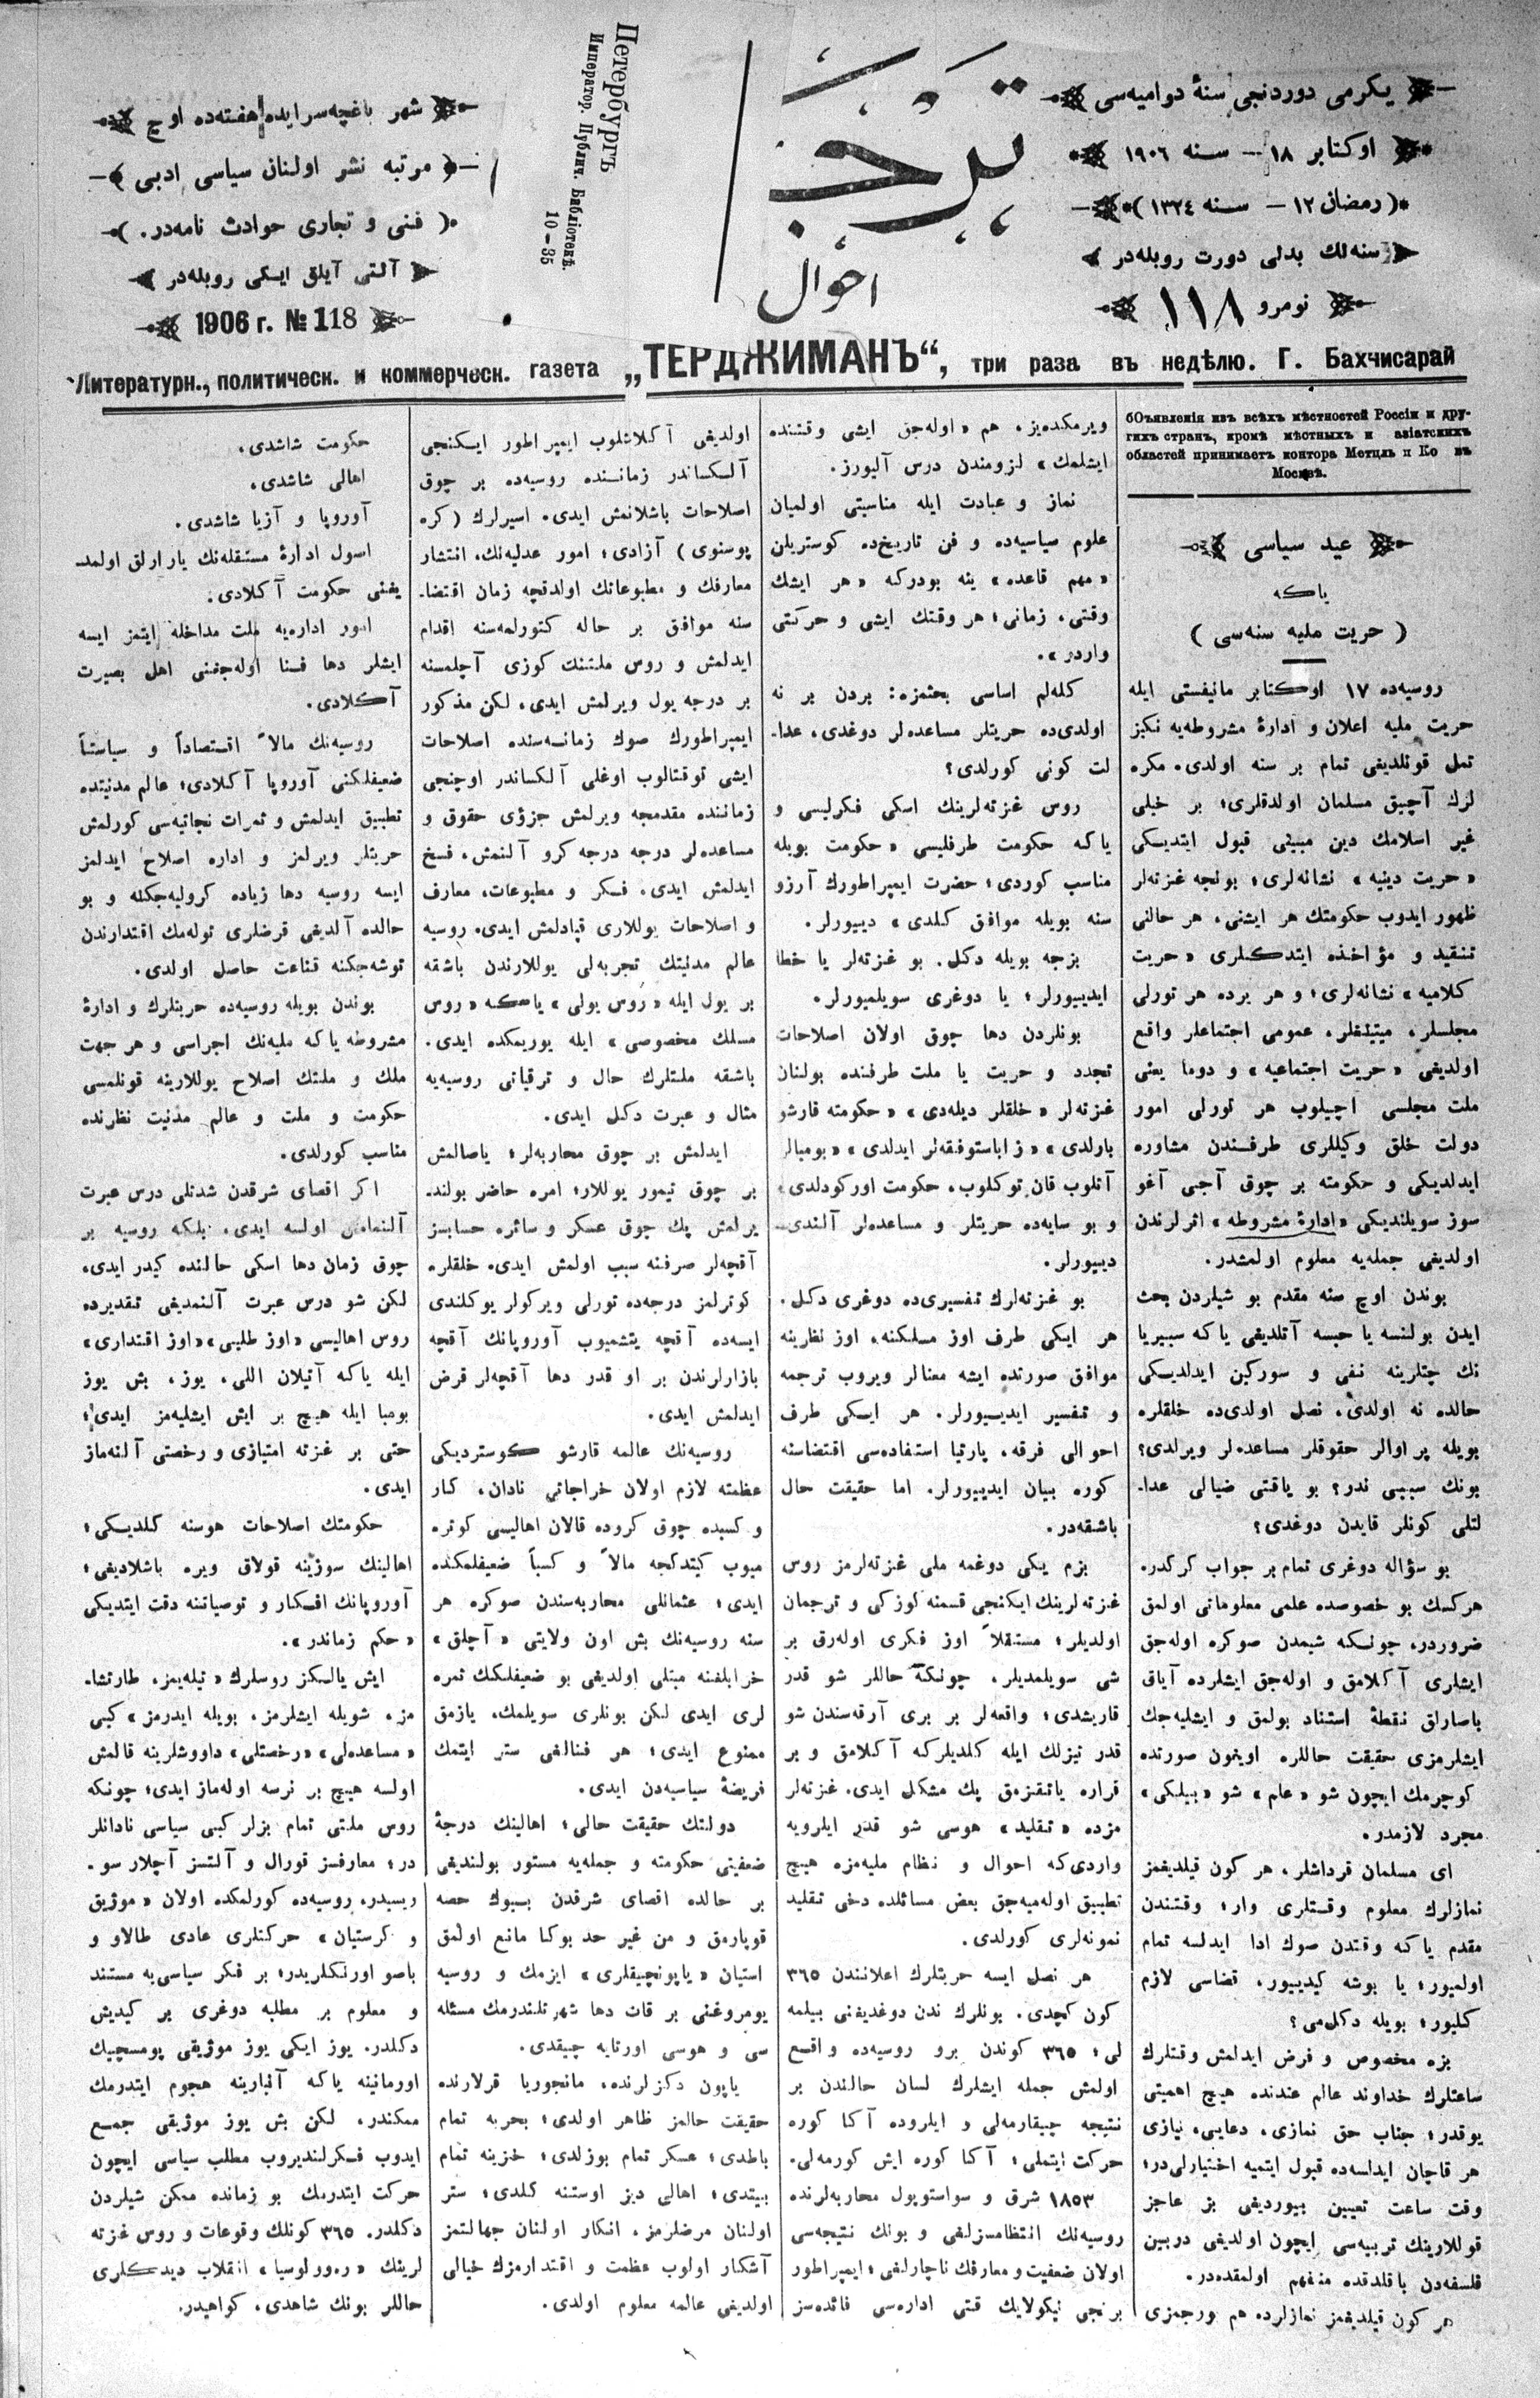 يكرمی دوردنجی سنهٔ دواميه‌سی
اوكتابر ١٨ — سنه ١٩٠٦
(رمضان ١٢ — سنه ١٣٢٤)
سنه‌لك بدلی دورت روبله‌در
نومرو ١١٨
ترجمان
احوال
Петербургъ
Император. Публич. Библіотекѣ.
10-35
شهر باغچه‌سرايده هفته‌ده اوچ
مرتبه نشر اولنان سياسی ادبی
(فنی و تجاری حوادث نامه‌در.)
آلتی آيلق ايكی روبله‌در
1906 г. № 118
Литературн., политическ. и коммерческ. газета „ТЕРДЖИМАНЪ“, три раза въ недѣлю. Г. Бахчисарай
бОъявленія изъ всѣхъ мѣстностей Россіи и дру-
гихъ странъ, кромѣ мѣстныхъ и азіатскихъ
областей принимаетъ контора Метцль и Ко въ
Москвѣ.
عيد سياسی
ياكه
(حريت مليه سنه‌سی)
روسيه‌ده ١٧ اوكتابر مانيفستی ايله
حريت مليه اعلان و ادارهٔ مشروطه‌يه نكيز
تمل قوئلديغی تمام بر سنه اولدی. مكره
لرك آچيق مسلمان اولدقلری؛ بر خيلی
غير اسلامك دين مبينی قبول ايتديكی
«حريت دينيه» نشانه‌لری؛ بونجه غزته‌لر
ظهور ايدوب حكومتك هر ايشنی، هر حالنی
تنقيد و مؤاخذه ايتدكلری «حريت
كلاميه» نشانه‌لری؛ و هر يرده هر تورلی
مجلسلر، ميتينغلر، عمومی اجتماعلر واقع
اولديغی «حريت اجتماعيه» و دوما يعنی
ملت مجلسی اچيلوب هر تورلی امور
دولت خلق وكيللری طرفندن مشاوره
ايدلديكی و حكومته بر چوق آجی آغو
سوز سويلنديكی «ادارهٔ مشروطه» اثرلرندن
اولديغی جمله‌يه معلوم اولمشدر.
بوندن اوچ سنه مقدم بو شيلردن بحث
ايدن بولنسه يا حبسه آتلديغی ياكه سيبيريا
نك چتلرينه نفی و سوركين ايدلديكی
حالده نه اولدی، نصل اولدی‌ده خلقلره
بويله پر اوالر حقوقلر مساعده‌لر ويرلدی؟
بونك سببی ندر؟ بو ياقتی ضيالی عدا-
لتلی كونلر قايدن دوغدی؟
بو سؤاله دوغری تمام بر جواب كركدر.
هركسك بو خصوصده علمی معلوماتی اولمق
ضروردر، چونكه شيمدن صوكره اوله‌جق
ايشلری آكلامق و اوله‌جق ايشلرده آياق
باصاراق نقطهٔ استناد بولمق و ايشليه‌جك
ايشلرمزی حقيقت حاللره اويغون صورتده
كوچرمك ايچون شو «علم» شو «بيلكی»
مجرد لازمدر.
ای مسلمان قرداشلر، هر كون قيلديغمز
نمازلرك معلوم وقتلری وار؛ وقتندن
مقدم ياكه وقتدن صوك ادا ايدلسه تمام
اولميور؛ يا بوشه كيدييور، قضاسی لازم
كليور؛ بويله دكل‌می؟
بزه مخصوص و فرض ايدلمش وقتلرك
ساعتلرك خداوند عالم عندنده هيچ اهميتی
يوقدر؛ جناب حق نمازی، دعايی، نيازی
هر قاچان ايداسه‌ده قبول ايتميه اختيارلی‌در؛
وقت ساعت تعيين بيورديغی بز عاجز
قوللارينك تربيه‌سی ايچون اولديغی دربين
فلسفه‌دن باقلدقده منفهم اولمقده‌در.
هر كون قيلديغمز نمازلرده هم بورجمزی
ويرمكده‌يز، هم «اوله‌جق ايشی وقتنده
ايشلمك» لزومندن درس آليورز.
نماز و عبادت ايله مناسبتی اولميان
علوم سياسيه‌ده و فن تاريخ‌ده كوستريلن
«مهم قاعده» ينه بودركه «هر ايشك
وقتی، زمانی؛ هر وقتك ايشی و حركتی
واردر».
كله‌لم اساسی بحثمزه: بردن بر نه
اولدی‌ده حريتلر مساعده‌لر دوغدی، عدا-
لت كونی كورلدی؟
روس غزته‌لرينك اسكی فكرليسی و
ياكه حكومت طرفليسی «حكومت بويله
مناسب كوردی؛ حضرت ايمپراطورك آرزو
سنه بويله موافق كلدی» دييورلر.
بزجه بويله دكل. بو غزته‌لر يا خطا
ايدييورلر؛ يا دوغری سويلميورلر.
بونلردن دها چوق اولان اصلاحات
تجدد و حريت يا ملت طرفنده بولنان
غزته‌لر «خلقلر ديله‌دی» «حكومته قارشو
باولدی» «زاباستوفقه‌لر ايدلدی» «بومبالر
آتلوب قان توكلوب، حكومت اوركودلدی»
و بو سايه‌ده حريتلر و مساعده‌لر آلندی-
دييورلر.
بو غزته‌لرك تفسيری‌ده دوغری دكل.
هر ايكی طرف اوز مسلكنه، اوز نظرينه
موافق صورتده ايشه معنالر ويروب ترجمه
و تفسير ايدييورلر. هر ايكی طرف
احوالی فرقه، پارتيا استفاده‌سی اقتضاسنه
كوره بيان ايدييورلر. اما حقيقت حال
باشقه‌در.
بزم يكی دوغمه ملی غزته‌لرمز روس
غزته‌لرينك ايكنجی قسمنه كوزكی و ترجمان
اولديلر؛ مستقلاً اوز فكری اوله‌رق بر
شی سويلمديلر، چونكه حاللر شو قدر
قاريشدی؛ واقعه‌لر بر بری آرقه‌سندن شو
قدر تيزلك ايله كلديلركه آكلامق و بر
قراره ياتقزمق پك مشكل ايدی. غزته‌لر
مزده «تقليد» هوسی شو قدر ايلرويه
واردی‌كه احوال و نظام مليه‌مزه هيچ
تطبيق اوله‌ميه‌جق بعض مسائلده دخی تقليد
نمونه‌لری كورلدی.
هر نصل ايسه حريتلرك اعلانندن ٣٦٥
كون كچدی. بونلرك ندن دوغديغنی بيلمه
لی؛ ٣٦٥ كوندن برو روسيه‌ده واقع
اولمش جمله ايشلرك لسان حالندن بر
نتيجه چيقارمه‌لی و ايلروده آكا كوره
حركت ايتملی؛ آكا كوره ايش كورمه‌لی.
١٨٥٣ شرق و سواستوپول محاربه‌لرنده
روسيه‌نك انتظامسزلغی و بونك نتيجه‌سی
اولان ضعفيت و معارفك ناچارلغی؛ ايمپراطور
برنجی نيكولايك قتی اداره‌سی فائده‌سز
اولديغی آكلاشلوب ايمپراطور ايكنجی
آلكساندر زماننده روسيه‌ده بر چوق
اصلاحات باشلانمش ايدی. اسيرلرك (كره
پوسنوی) آزادی؛ امور عدليه‌نك، انتشار
معارفك و مطبوعاتك اولدقچه زمان اقتضا-
سنه موافق بر حاله كتورلمه‌سنه اقدام
ايدلمش و روس ملتنك كوزی آچلمسنه
بر درجه يول ويرلمش ايدی، لكن مذكور
ايمپراطورك صوك زمانه‌سنده اصلاحات
ايشی توقتالوب اوغلی آلكساندر اوچنجی
زماننده مقدمجه ويرلمش جزؤی حقوق و
مساعده‌لر درجه درجه كرو آلنمش، فسخ
ايدلمش ايدی. فكر و مطبوعات، معارف
و اصلاحات يوللاری قپادلمش ايدی. روسيه
عالم مدنيتك تجربه‌لی يوللارندن باشقه
بر يول ايله «روس يولی» ياكه «روس
مسلك مخصوصی» ايله يوريمكده ايدی.
باشقه ملتلرك حال و ترقياتی روسيه‌يه
مثال و عبرت دكل ايدی.
ايدلمش بر چوق محاربه‌لر؛ ياصالمش
بر چوق تيمور يوللار؛ امره حاضر بولند-
يرلمش پك چوق عسكر و سائره حسابسز
آقچه‌لر صرفنه سبب اولمش ايدی. خلقلره
كوترلمز درجه‌ده تورلی ويركولر يوكلندی
ايسه‌ده آقچه يتشميوب آوروپانك آقچه
بازارلرندن بر او قدر دها آقچه‌لر قرض
ايدلمش ايدی.
روسيه‌نك عالمه قارشو كوسترديكی
عظمته لازم اولان خراجاتی نادان، كار
و كسبده چوق كروده قالان اهاليسی كوتره
ميوب كيتدكجه مالاً و كسباً ضعيفلمكده
ايدی؛ عثمانلی محاربه‌سندن صوكره هر
سنه روسيه‌نك بش اون ولايتی «آچلق»
خرابلغنه مبتلی اولديغی بو ضعيفلكك ثمره
لری ايدی لكن بونلری سويلمك، يازمق
ممنوع ايدی؛ هر فنالغی ستر ايتمك
فريضهٔ سياسيه‌دن ايدی.
دولتك حقيقت حالی؛ اهالينك درجهٔ
ضعفيتی حكومته و جمله‌يه مستور بولنديغی
بر حالده اقصای شرقدن بيوك حصه
قوپارمق و من غير حد بوكا مانع اولمق
استيان «ياپونچيقلری» ايزمك و روسيه
يومروغنی بر قات دها شهرتلندرمك مسئله
سی و هوسی اورتايه چيقدی.
ياپون دكزلرنده، مانجوريا قرلارنده
حقيقت حالمز ظاهر اولدی؛ بحريه تمام
باطدی؛ عسكر تمام بوزلدی؛ خزينه تمام
بيتدی؛ اهالی ديز اوستنه كلدی؛ ستر
اولنان مرضلرمز، انكار اولنان جهالتمز
آشكار اولوب عظمت و اقتدارمزك خيالی
اولديغی عالمه معلوم اولدی.
حكومت شاشدی،
اهالی شاشدی،
آوروپا و آزيا شاشدی.
اسول ادارهٔ مستقله‌نك يارارلق اولمد-
يغنی حكومت آكلادی.
امور اداره‌يه ملت مداخله ايتمز ايسه
ايشلر دها فنا اوله‌جغنی اهل بصيرت
آكلادی.
روسيه‌نك مالاً اقتصاداً و سياستاً
ضعيفلكنی آوروپا آكلادی؛ عالم مدنيتده
تطبيق ايدلمش و ثمرات نجاتيه‌سی كورلمش
حريتلر ويرلمز و اداره اصلاح ايدلمز
ايسه روسيه دها زياده كروليه‌جكنه و بو
حالده آلديغی قرضلری توله‌مك اقتدارندن
توشه‌جكنه قناعت حاصل اولدی.
بوندن بويله روسيه‌ده حريتلرك و ادارهٔ
مشروطه ياكه مليه‌نك اجراسی و هر جهت
ملك و ملتك اصلاح يوللارينه قونلمسی
حكومت و ملت و عالم مدنيت نظرنده
مناسب كورلدی.
اكر اقصای شرقدن شدتلی درس عبرت
آلنمامش اولسه ايدی، بلكه روسيه بر
چوق زمان دها اسكی حالنده كيدر ايدی،
لكن شو درس عبرت آلنمديغی تقديرده
روس اهاليسی «اوز طلبی» «اوز اقتداری»
ايله ياكه آتيلان اللی، يوز، بش يوز
بومبا ايله هيچ بر ايش ايشليه‌مز ايدی؛
حتی بر غزته امتيازی و رخصتی آلنه‌ماز
ايدی.
حكومتك اصلاحات هوسنه كلديكی؛
اهالينك سوزينه قولاق ويره باشلاديغی؛
آوروپانك افكار و توصياتنه دقت ايتديكی
«حكم زماندر».
ايش يالكز روسلرك «تيله‌يمز، طارتشا-
مز، شويله ايشلرمز، بويله ايدرمز» كبی
«مساعده‌لی» «رخصتلی» داووشلرينه قالمش
اولسه هيچ بر نرسه اوله‌ماز ايدی؛ چونكه
روس ملتی تمام بزلر كبی سياسی نادانلر
در؛ معارفسز قورال و آلتسز آچلار سو-
ريسيدر، روسيه‌ده كورلمكده اولان «موژيق
و كرستيان» حركتلری عادی طالاو و
باصو اورنكلريدر؛ بر فكر سياسی‌يه مستند
و معلوم بر مطلبه دوغری بر كيديش
دكلدر. يوز ايكی يوز موژيقی پومسچيك
اورمانينه ياكه آنبارينه هجوم ايتدرمك
ممكندر، لكن بش يوز موژيقی جمع
ايدوب فكرلنديروب مطلب سياسی ايچون
حركت ايتدرمك بو زمانده ممكن شيلردن
دكلدر. ٣٦٥ كونلك وقوعات و روس غزته
لرينك «ره‌وولوسيا» انقلاب ديدكلری
حاللر بونك شاهدی، كواهيدر.